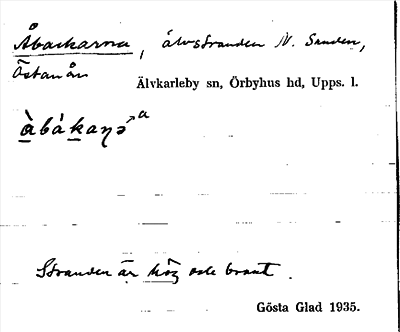 Åbackarna, älvstranden N. Sanden,
Östanån
Älvkarleby sn, Örbyhus hd, Upps. l.
Stranden är hög och brant.
Gösta Glad 1935.